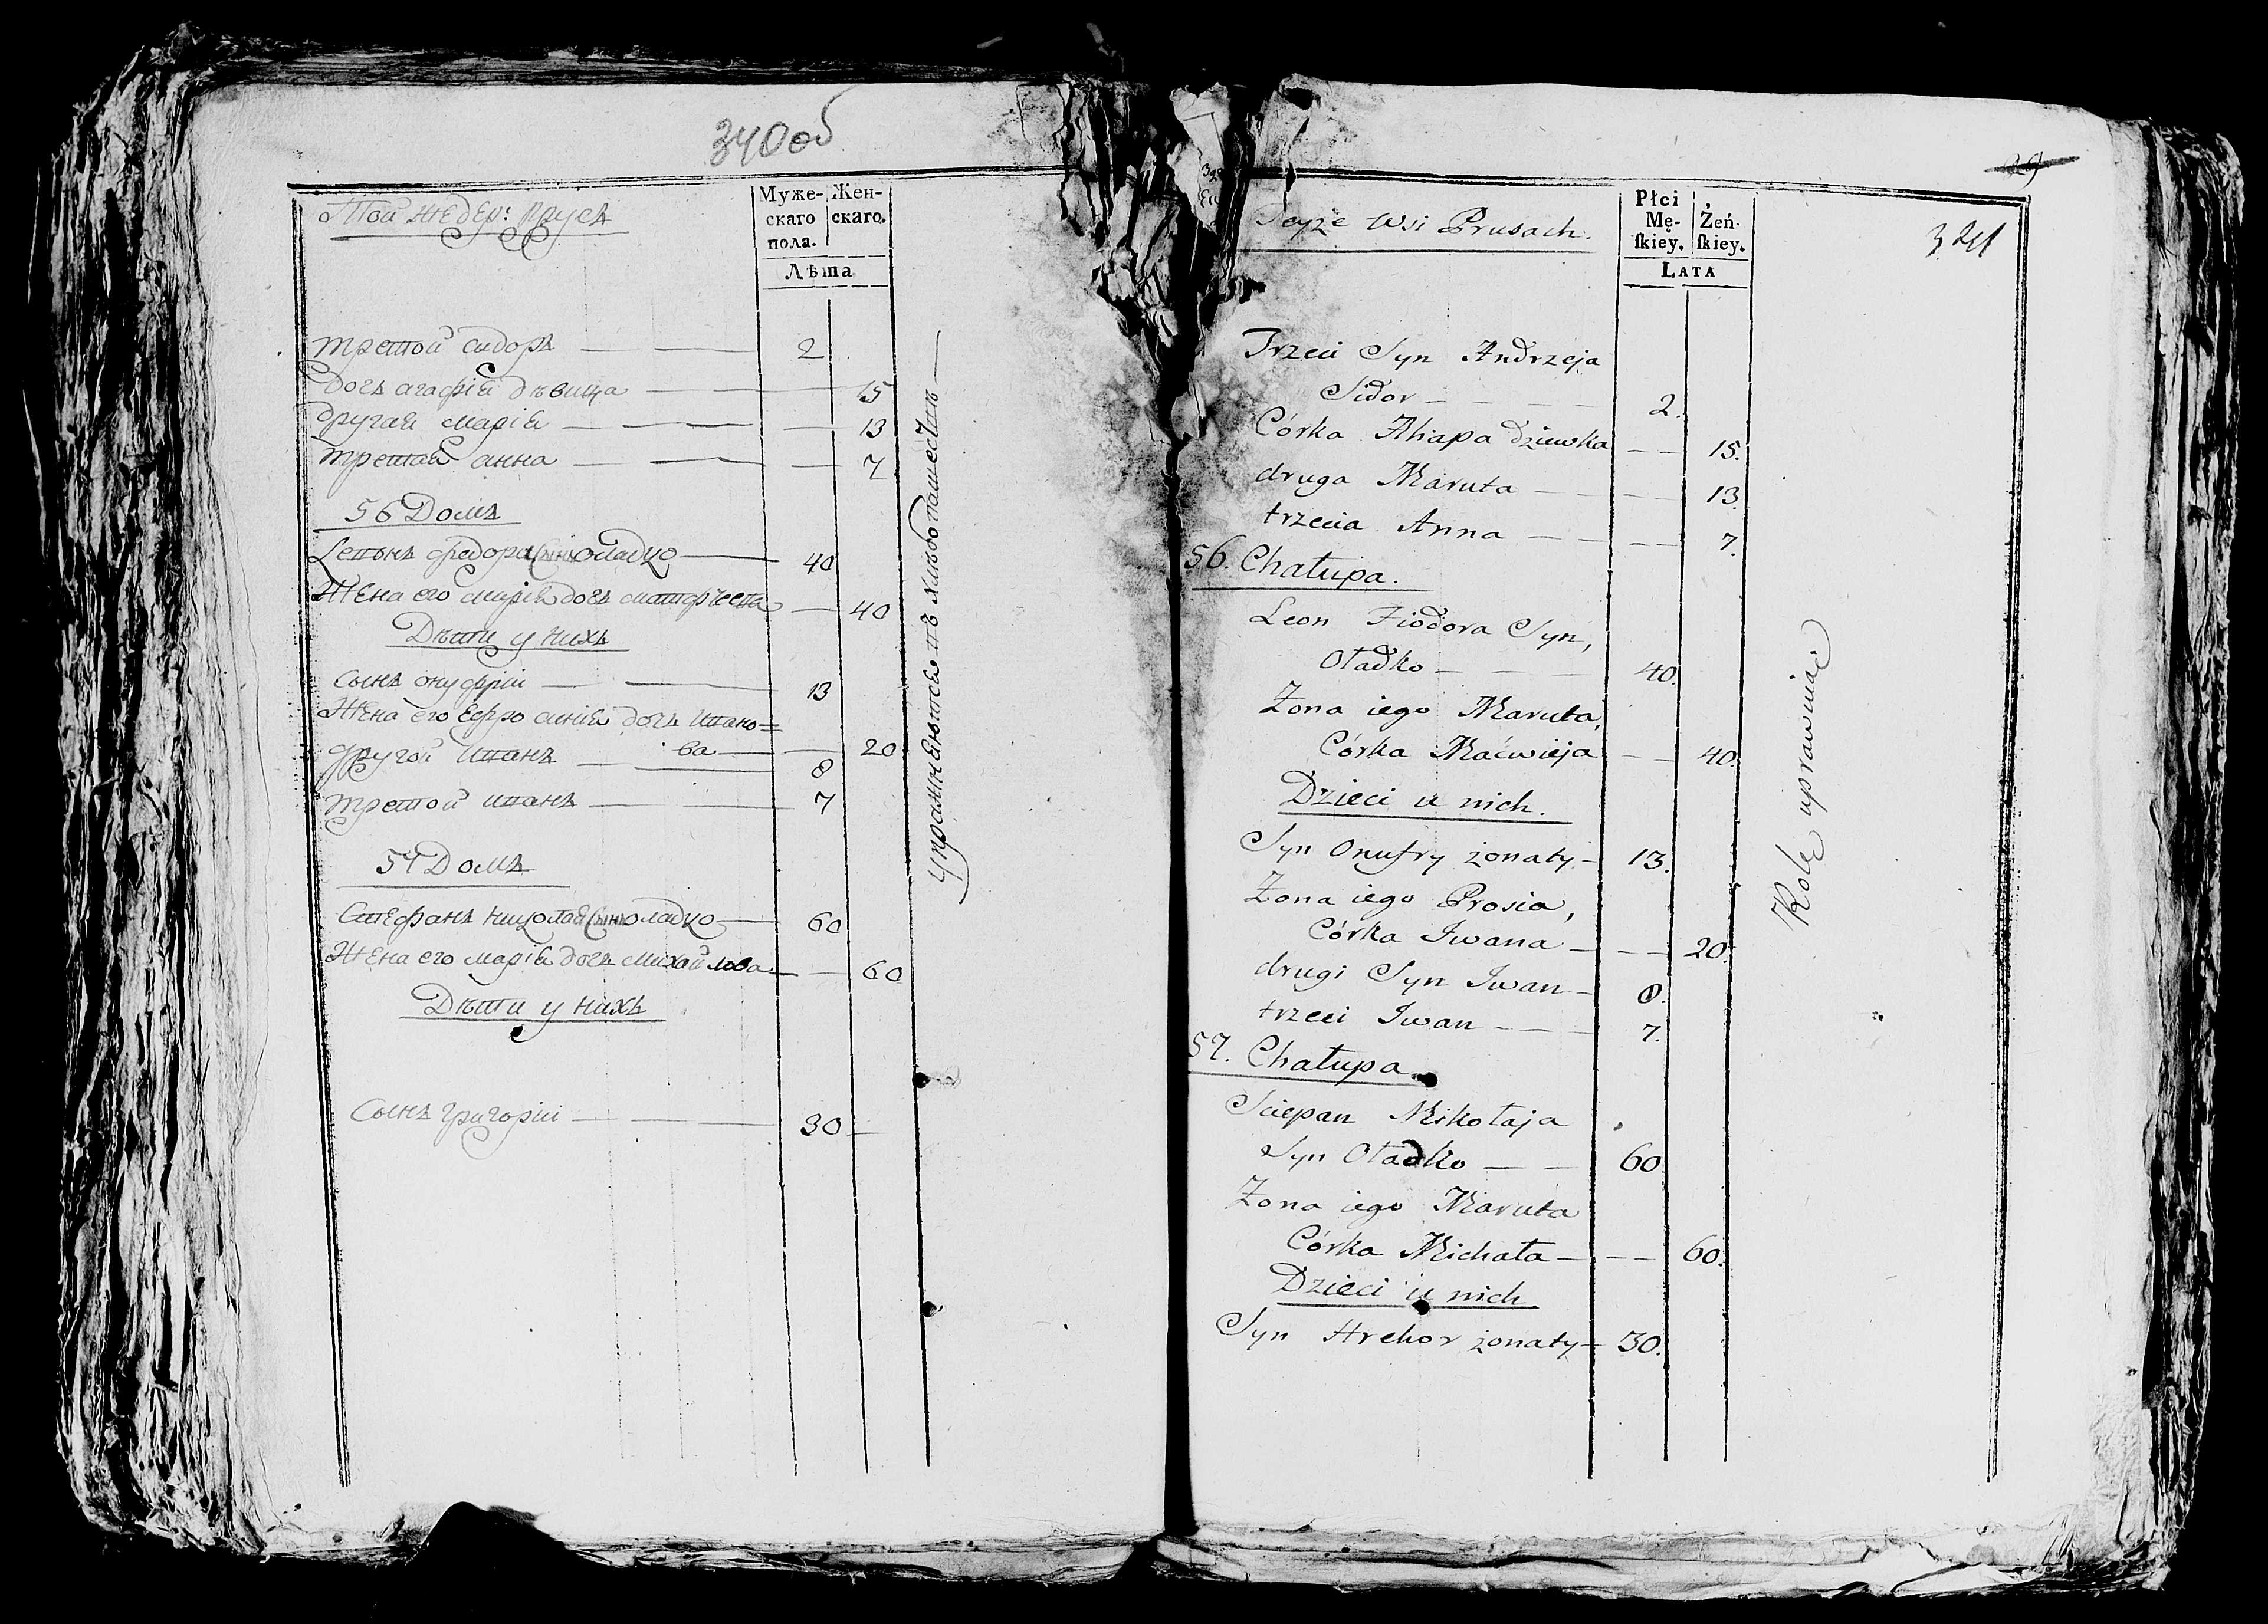 340об
Той же дер: Прусъ
Муже- Жен-
скаго скаго.
пола.
Лѣта
третой сидоръ 2
дочь агафія дѣвица 15
другая марія 13
третая анна 7
56 Домъ
федора сынъ оладко 40
Жена его марія дочь 40
Дѣти у нихъ
сынъ онуфрій 13
Жена его Ефросинія дочь ивано=
ва 20
другой иванъ 8
третой иванъ 7
57 Домъ
Стефанъ николая сынъ оладко 60
Жена его марія дочь михайлова 60
Дѣти у нихъ
Сынъ григорій 30
упражняются въ хлѣбопашествѣ
29
341
Teyże Wsi Prusach.
Płci
Mę- Żeń-
skiey. skiey.
LATA
Trzeci Syn Andrzeja
Sidor 2.
Córka Ahapa dziewka 15.
druga Maruta 13.
trzecia Anna 7.
56. Chałupa.
Leon Fiodora Syn,
Oładko 40.
Żona iego Maruta,
Córka Maćwieja 40.
Dzieci u nich.
Syn Onufry żonaty 13.
Żona iego Prosia,
Córka Iwana 20.
drugi Syn Iwan 8.
trzeci Iwan 7.
57. Chałupa
Sciepan Mikołaja
Syn Oładko 60
Żona iego Maruta
Córka Michała 60.
Dzieci u nich
Syn Hrehor żonaty 30.
Rolę uprawniać